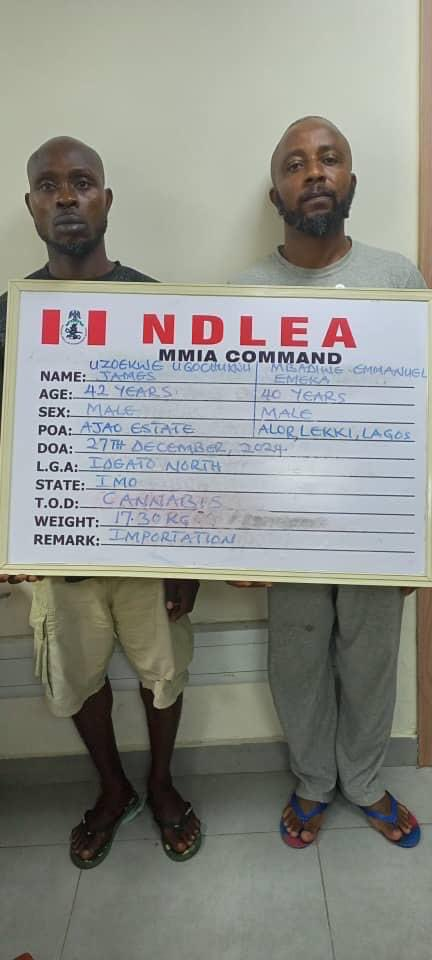 NDLEA
MMIA COMMAND
NAME: UZOEKWE UGOCHUKWU JAMES MBADIWE EMMANUEL EMEKA
AGE: 42 YEARS 40 YEARS
SEX: MALE MALE
POA: AJAO ESTATE ALOR, LEKKI, LAGOS
DOA: 27TH DECEMBER, 2024.
L.G.A: IDEATO NORTH
STATE: IMO
T.O.D: CANNABIS
WEIGHT: 17.30KG
REMARK: IMPORTATION